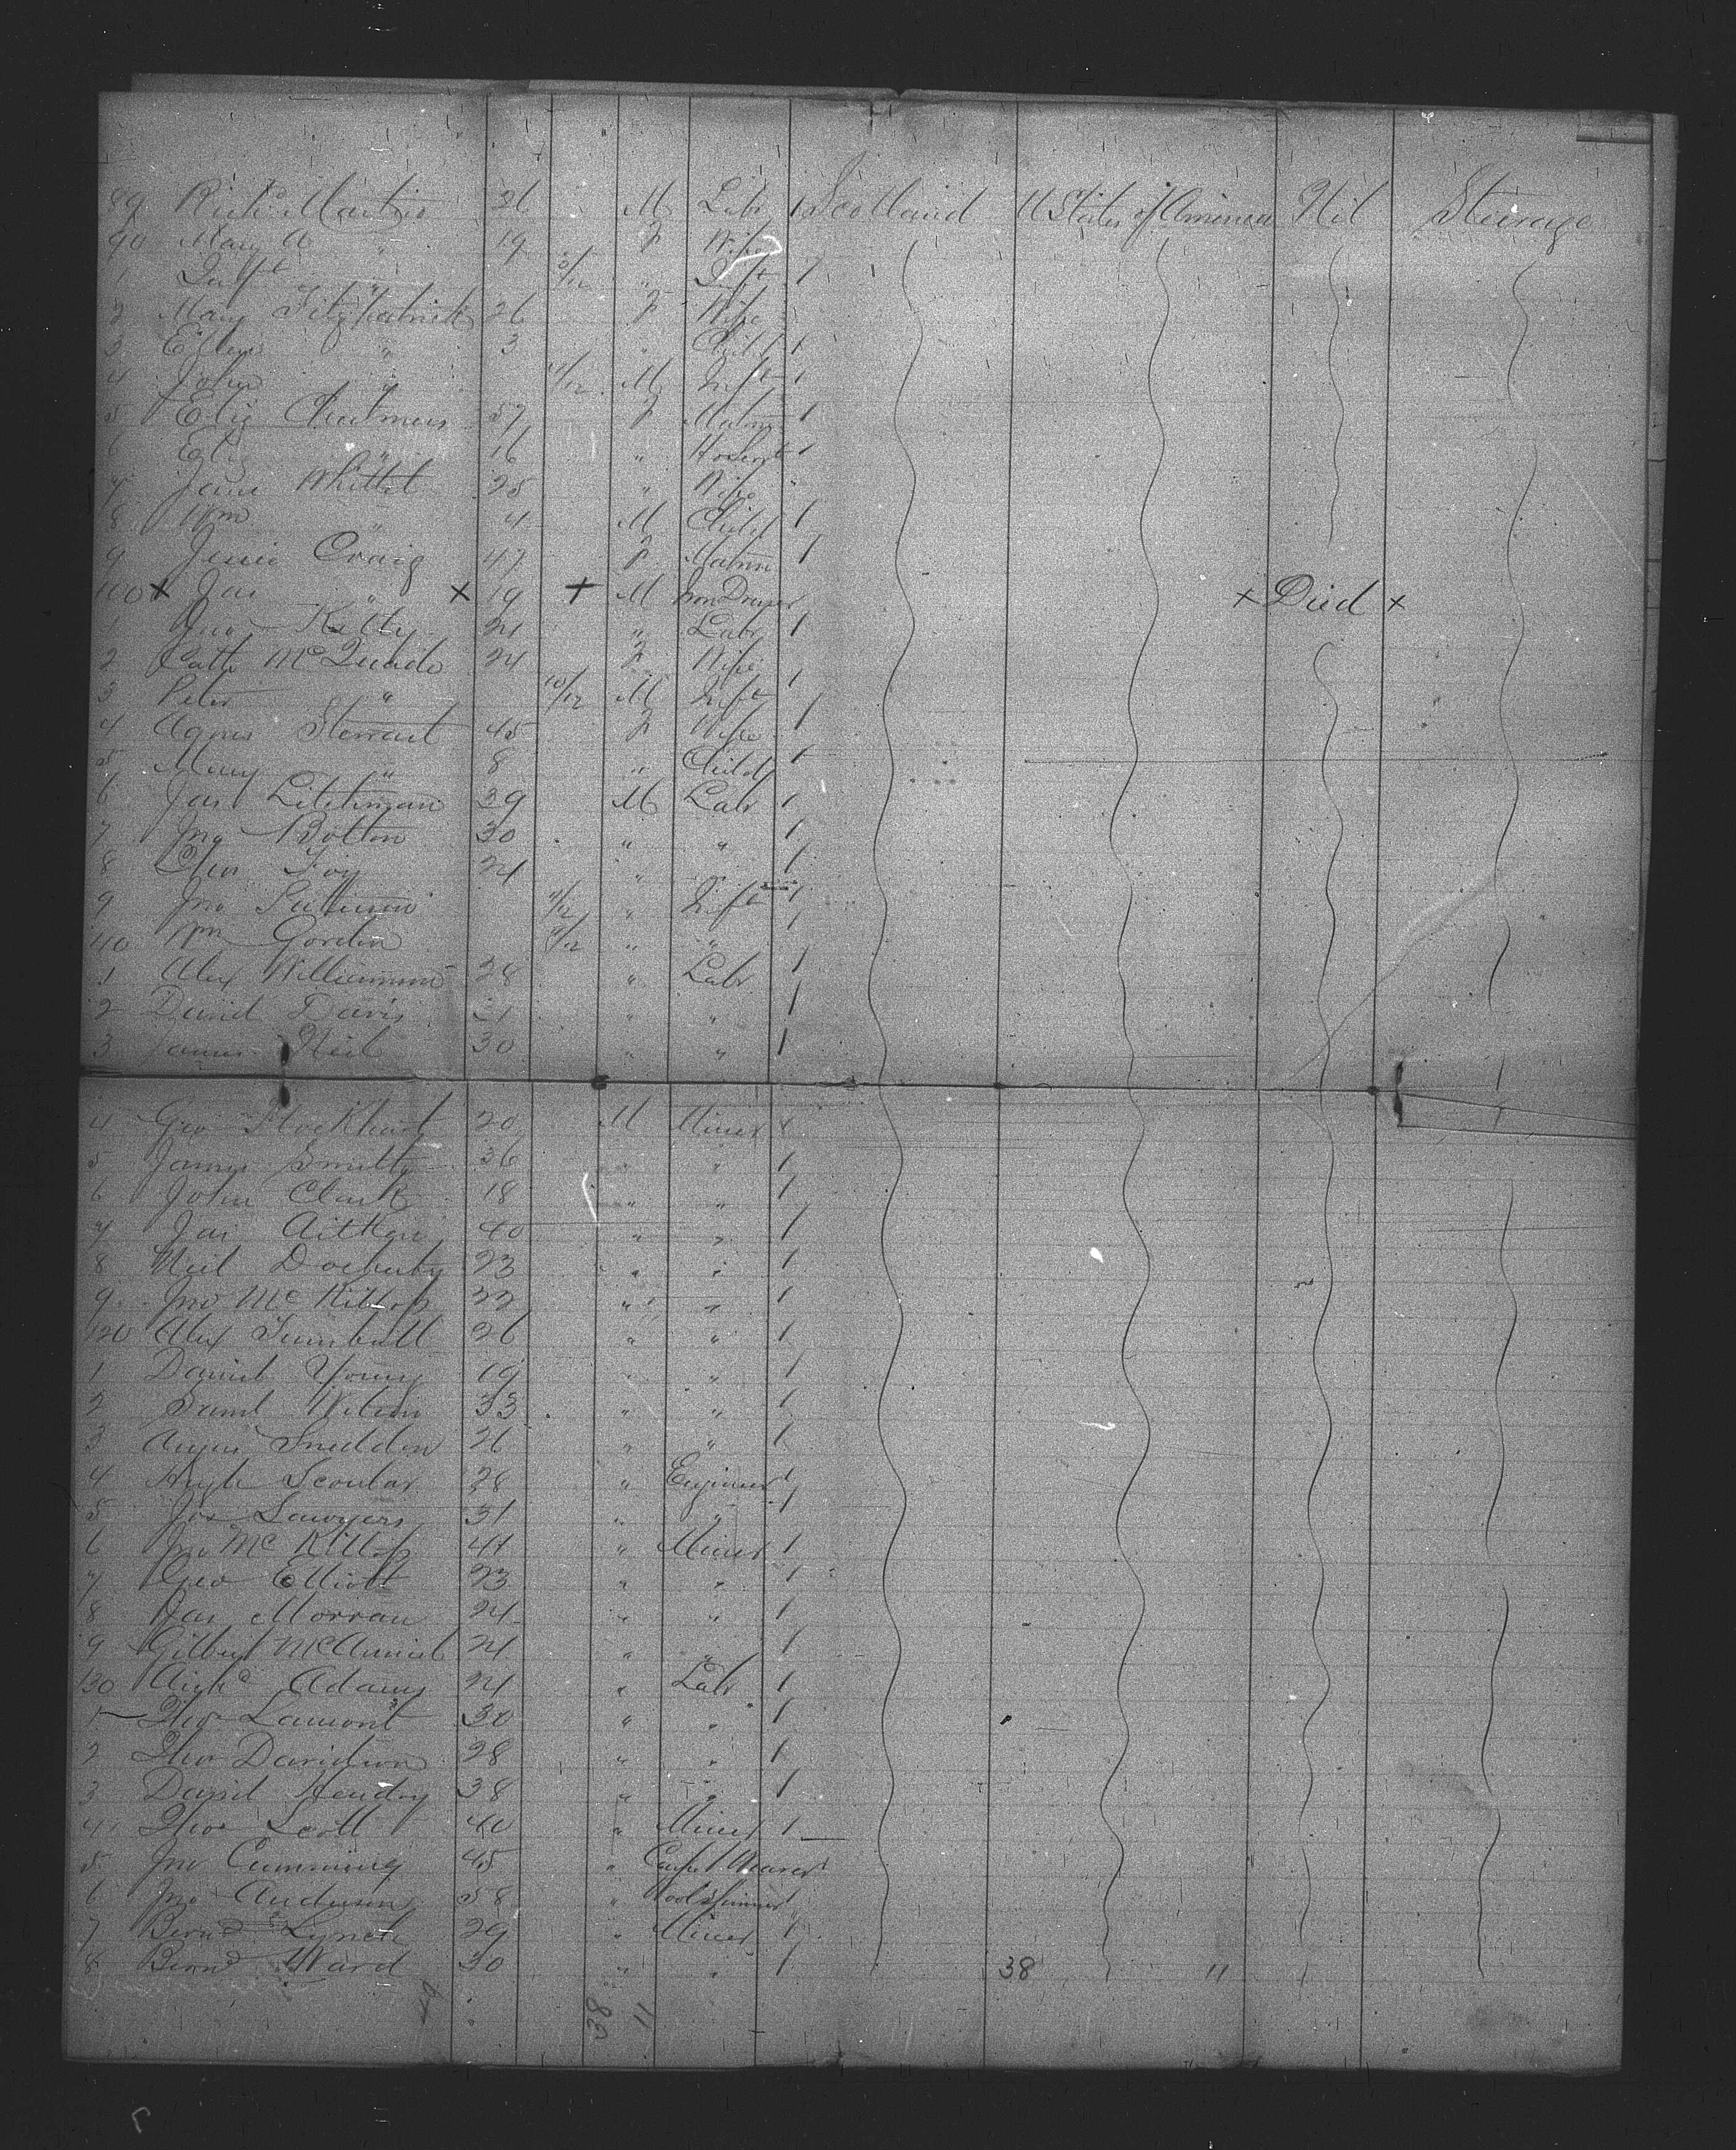 89 Richd Martin 26 M Labr 1 Scotland U States of America Nil Steerage
90 Mary A " 19 F Wife
1 Inft " 3/12 " Inft 1
2 Mary Fitzpatrick 26 F Wife
3 Ellen " 3 " Child 1
4 John " 11/12 M Inft 1
5 Eliz Chalmers 57 F Matron 1
6 Eliz " 16 " Ho Servt 1
7 Jane Whittel 25 " Wife
8 Wm " 4 M Child 1
9 Jessie Craig 47 F Matron 1
100 x Jas " x 19 + M Iron Draper x Died x
1 Jno Kelly 24 " Labr 1
2 Cath McQuade 24 F Wife
3 Peter " 10/12 M Inft 1
4 Agnes Stewart 45 F Wife 1
5 Mary " 8 " Child 1
6 Jas 39 M Labr 1
7 Jno Bolton 30 " " 1
8 Foy 24 " 1
9 Jno 11/12 " Inft 1
Wm Gordon " " 1
1 Alex Williamson 28 " Labr 1
2 David Davis 21 " " 1
3 James Neil 30 " " 1
4 Geo 20 M Miner 1
5 James Smith 36 " " 1
6 John Clark 18 " " 1
7 Jas Aitken 40 " " 1
8 Neil Docherty 23 " " 1
9 Jno McKillop 22 " " 1
120 Alex Turnbull 26 " " 1
1 Daniel Young 19 " " 1
2 Saml Wilson 33 " " 1
3 Angus Sneddon 26 " " 1
4 Hugh Scoular 28 " Engineer 1
5 Jos Sawyers 31 " " 1
6 Jno McKillop 44 " Miner 1
7 Geo Elliott 23 " " 1
8 Jas Morran 24 " " 1
9 Gilbert 24 " " 1
130 Archd Adams 24 " Labr 1
1 Thos Lamont 30 " " 1
2 Thos Davidson 28 " " 1
3 David Hendry 38 " " 1
4 Thos Scott 40 " Miner 1
5 Jno Cumming 45 " Carpet Weaver 1
6 Jno Anderson 58 " Wool Spinner 1
7 Bernd Lynch 29 " Miner 1
8 Bernd Ward 30 " " 1 38 11
38 11